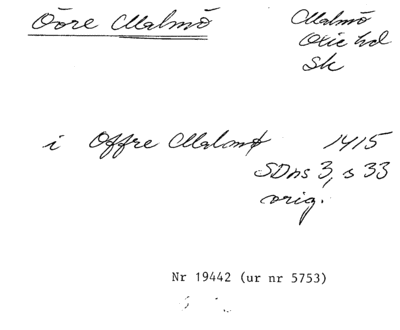 Övre Malmö
Malmö
Oxie hd
Sk
i Offre Malmø 1415
SDns 3, s 33
orig.
Nr 19442 (ur nr 5753)